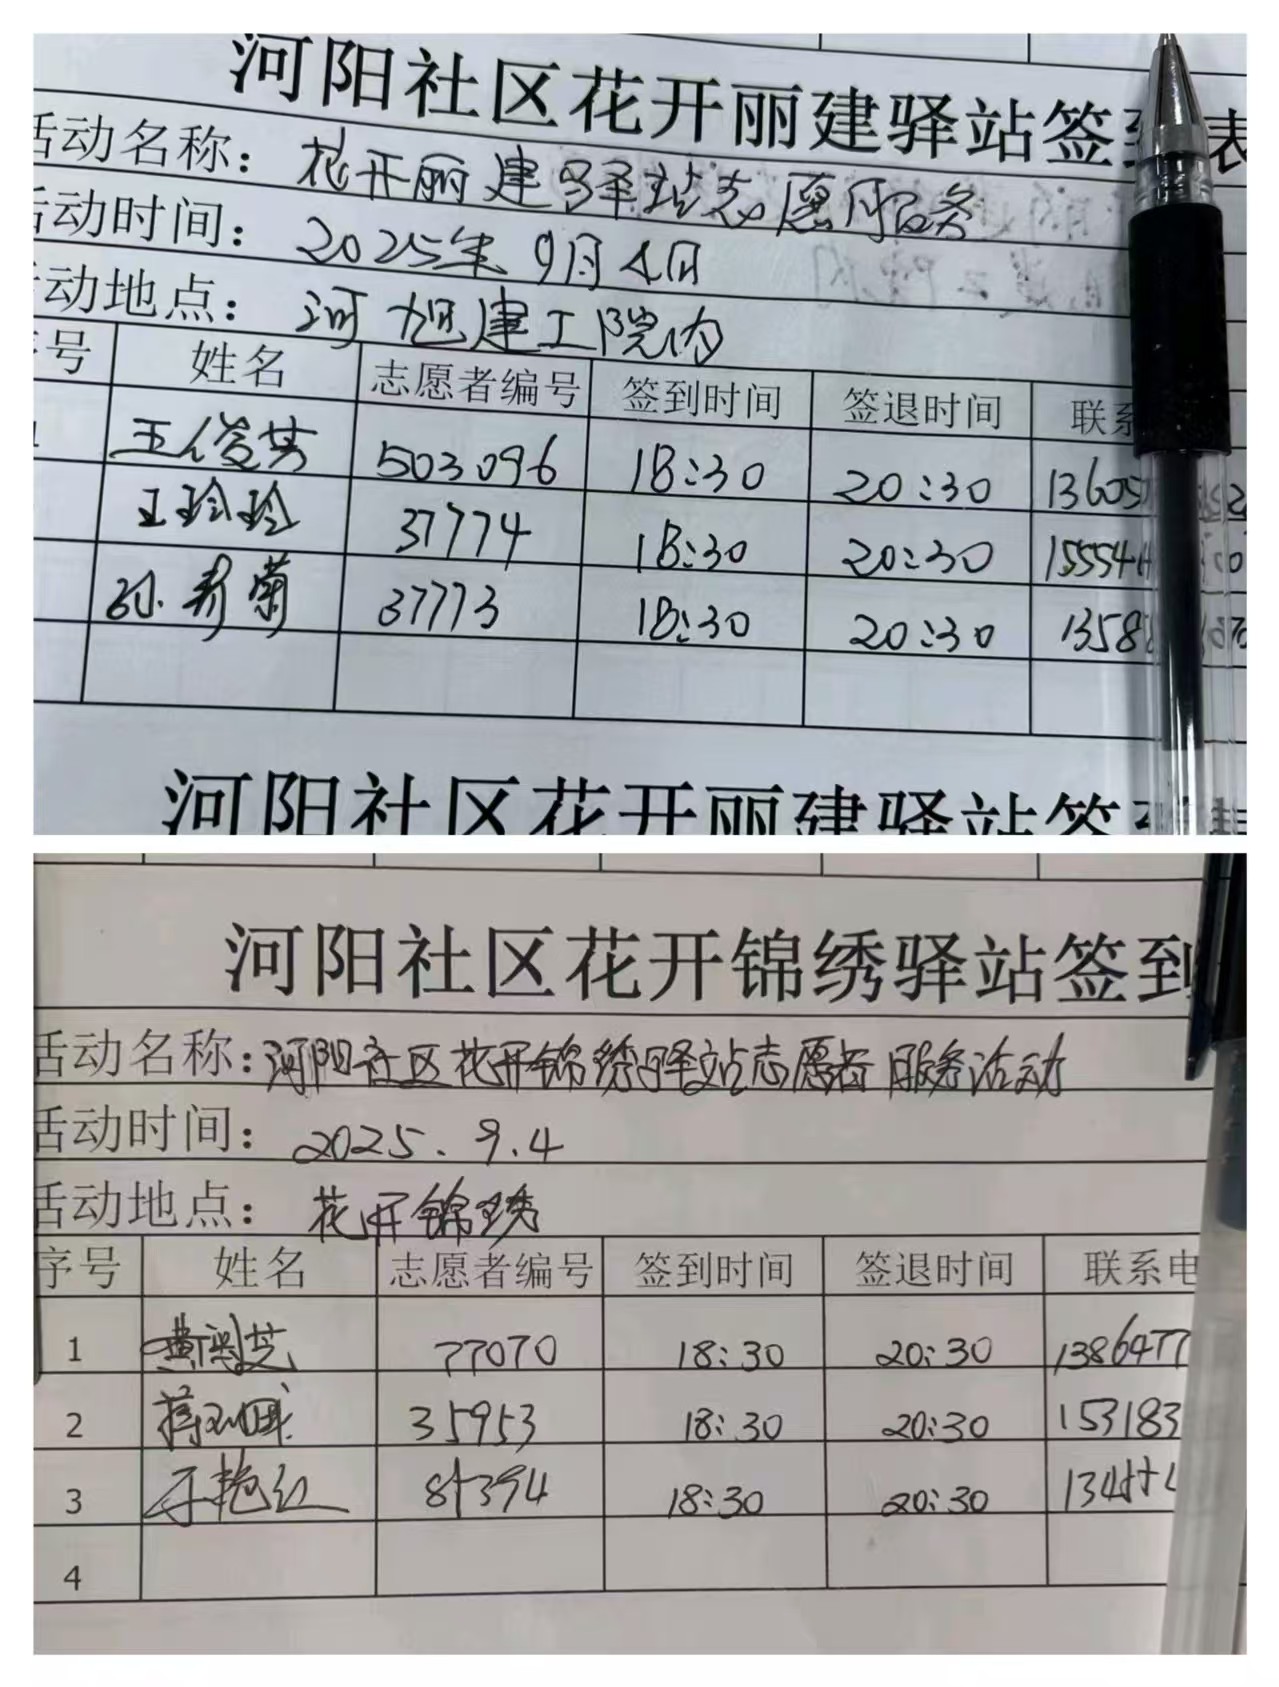 河阳社区花开丽建驿站签到表
活动名称：花开丽建驿站志愿服务
活动时间：2025年9月4日
活动地点：河旭建工院内
序号 姓名 志愿者编号 签到时间 签退时间 联系
1 王俊芳 503096 18:30 20:30 1360
王玲玲 37774 18:30 20:30 15554
孙秀菊 37773 18:30 20:30 1358
河阳社区花开丽建驿站签到表
河阳社区花开锦绣驿站签到
活动名称：河阳社区花开锦绣驿站志愿者服务活动
活动时间：2025.9.4
活动地点：花开锦绣
序号 姓名 志愿者编号 签到时间 签退时间 联系电
1 芝 77070 18:30 20:30 1386477
2 35953 18:30 20:30 153183
3 于艳红 81394 18:30 20:30 134
4